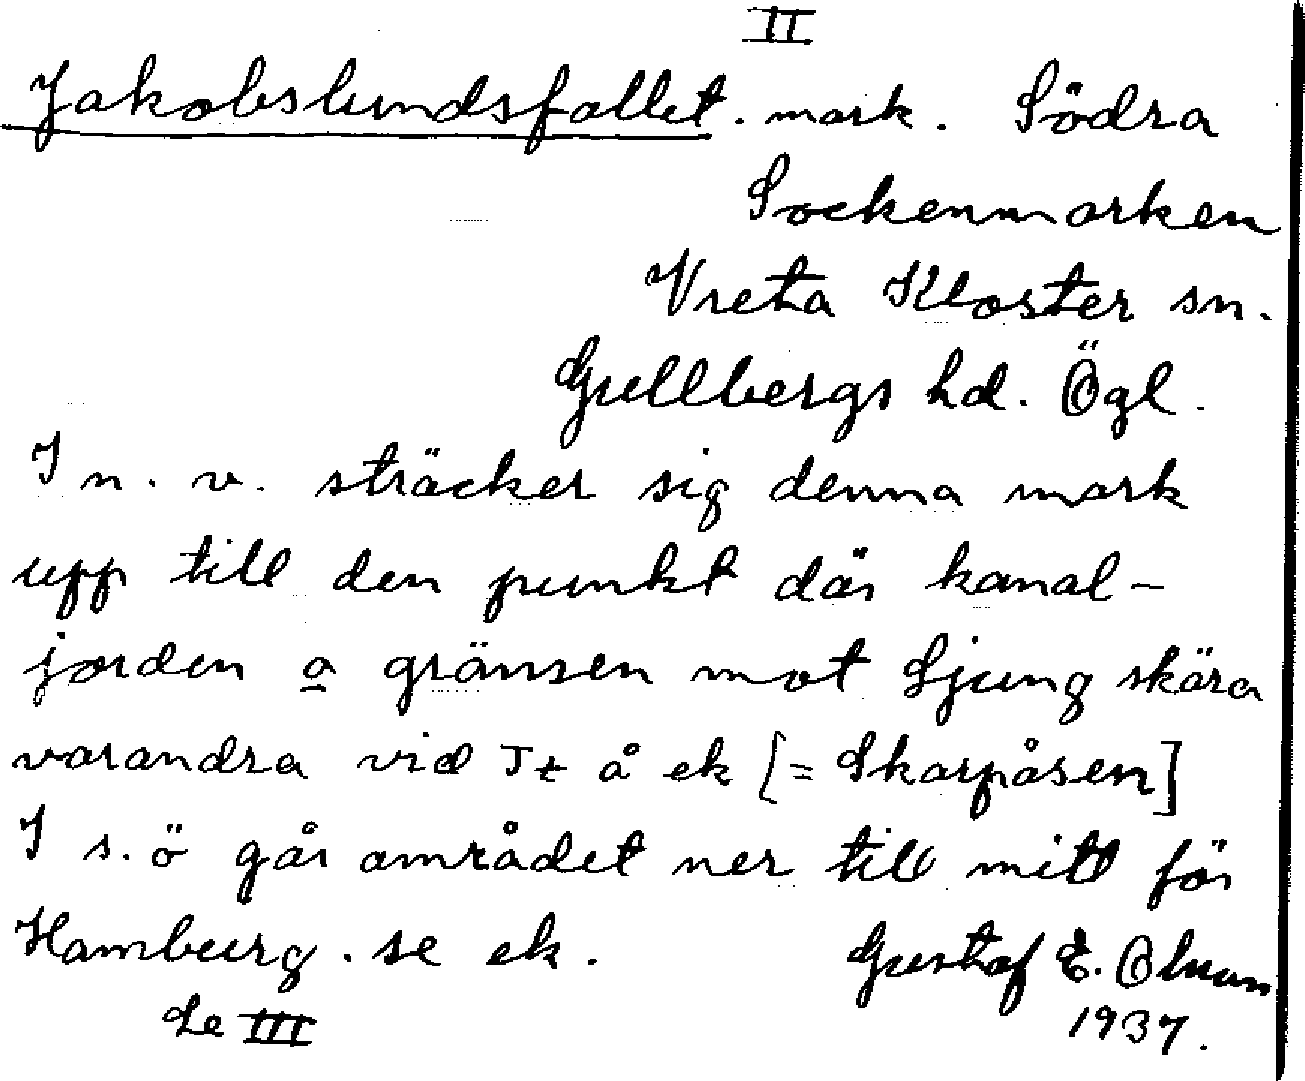 II
Jakobslundsfallet. mark. Södra
Sockenmarken
Vreta Kloster sn.
Gullbergs hd. Ögl.
I n. v. sträcker sig denna mark
upp till den punkt där kanal-
jorden o gränsen mot Ljung skära
varandra vid Jt å ek [= Skarpåsen]
I s. ö går området ner till mitt för
Hamburg. se ek.
Gustaf E. Olsson
Se III
1937.